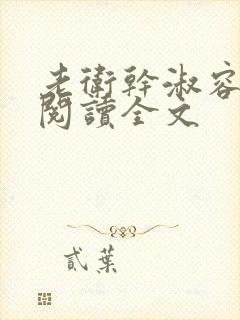 老衛幹淑容
閱讀全文
貳葉